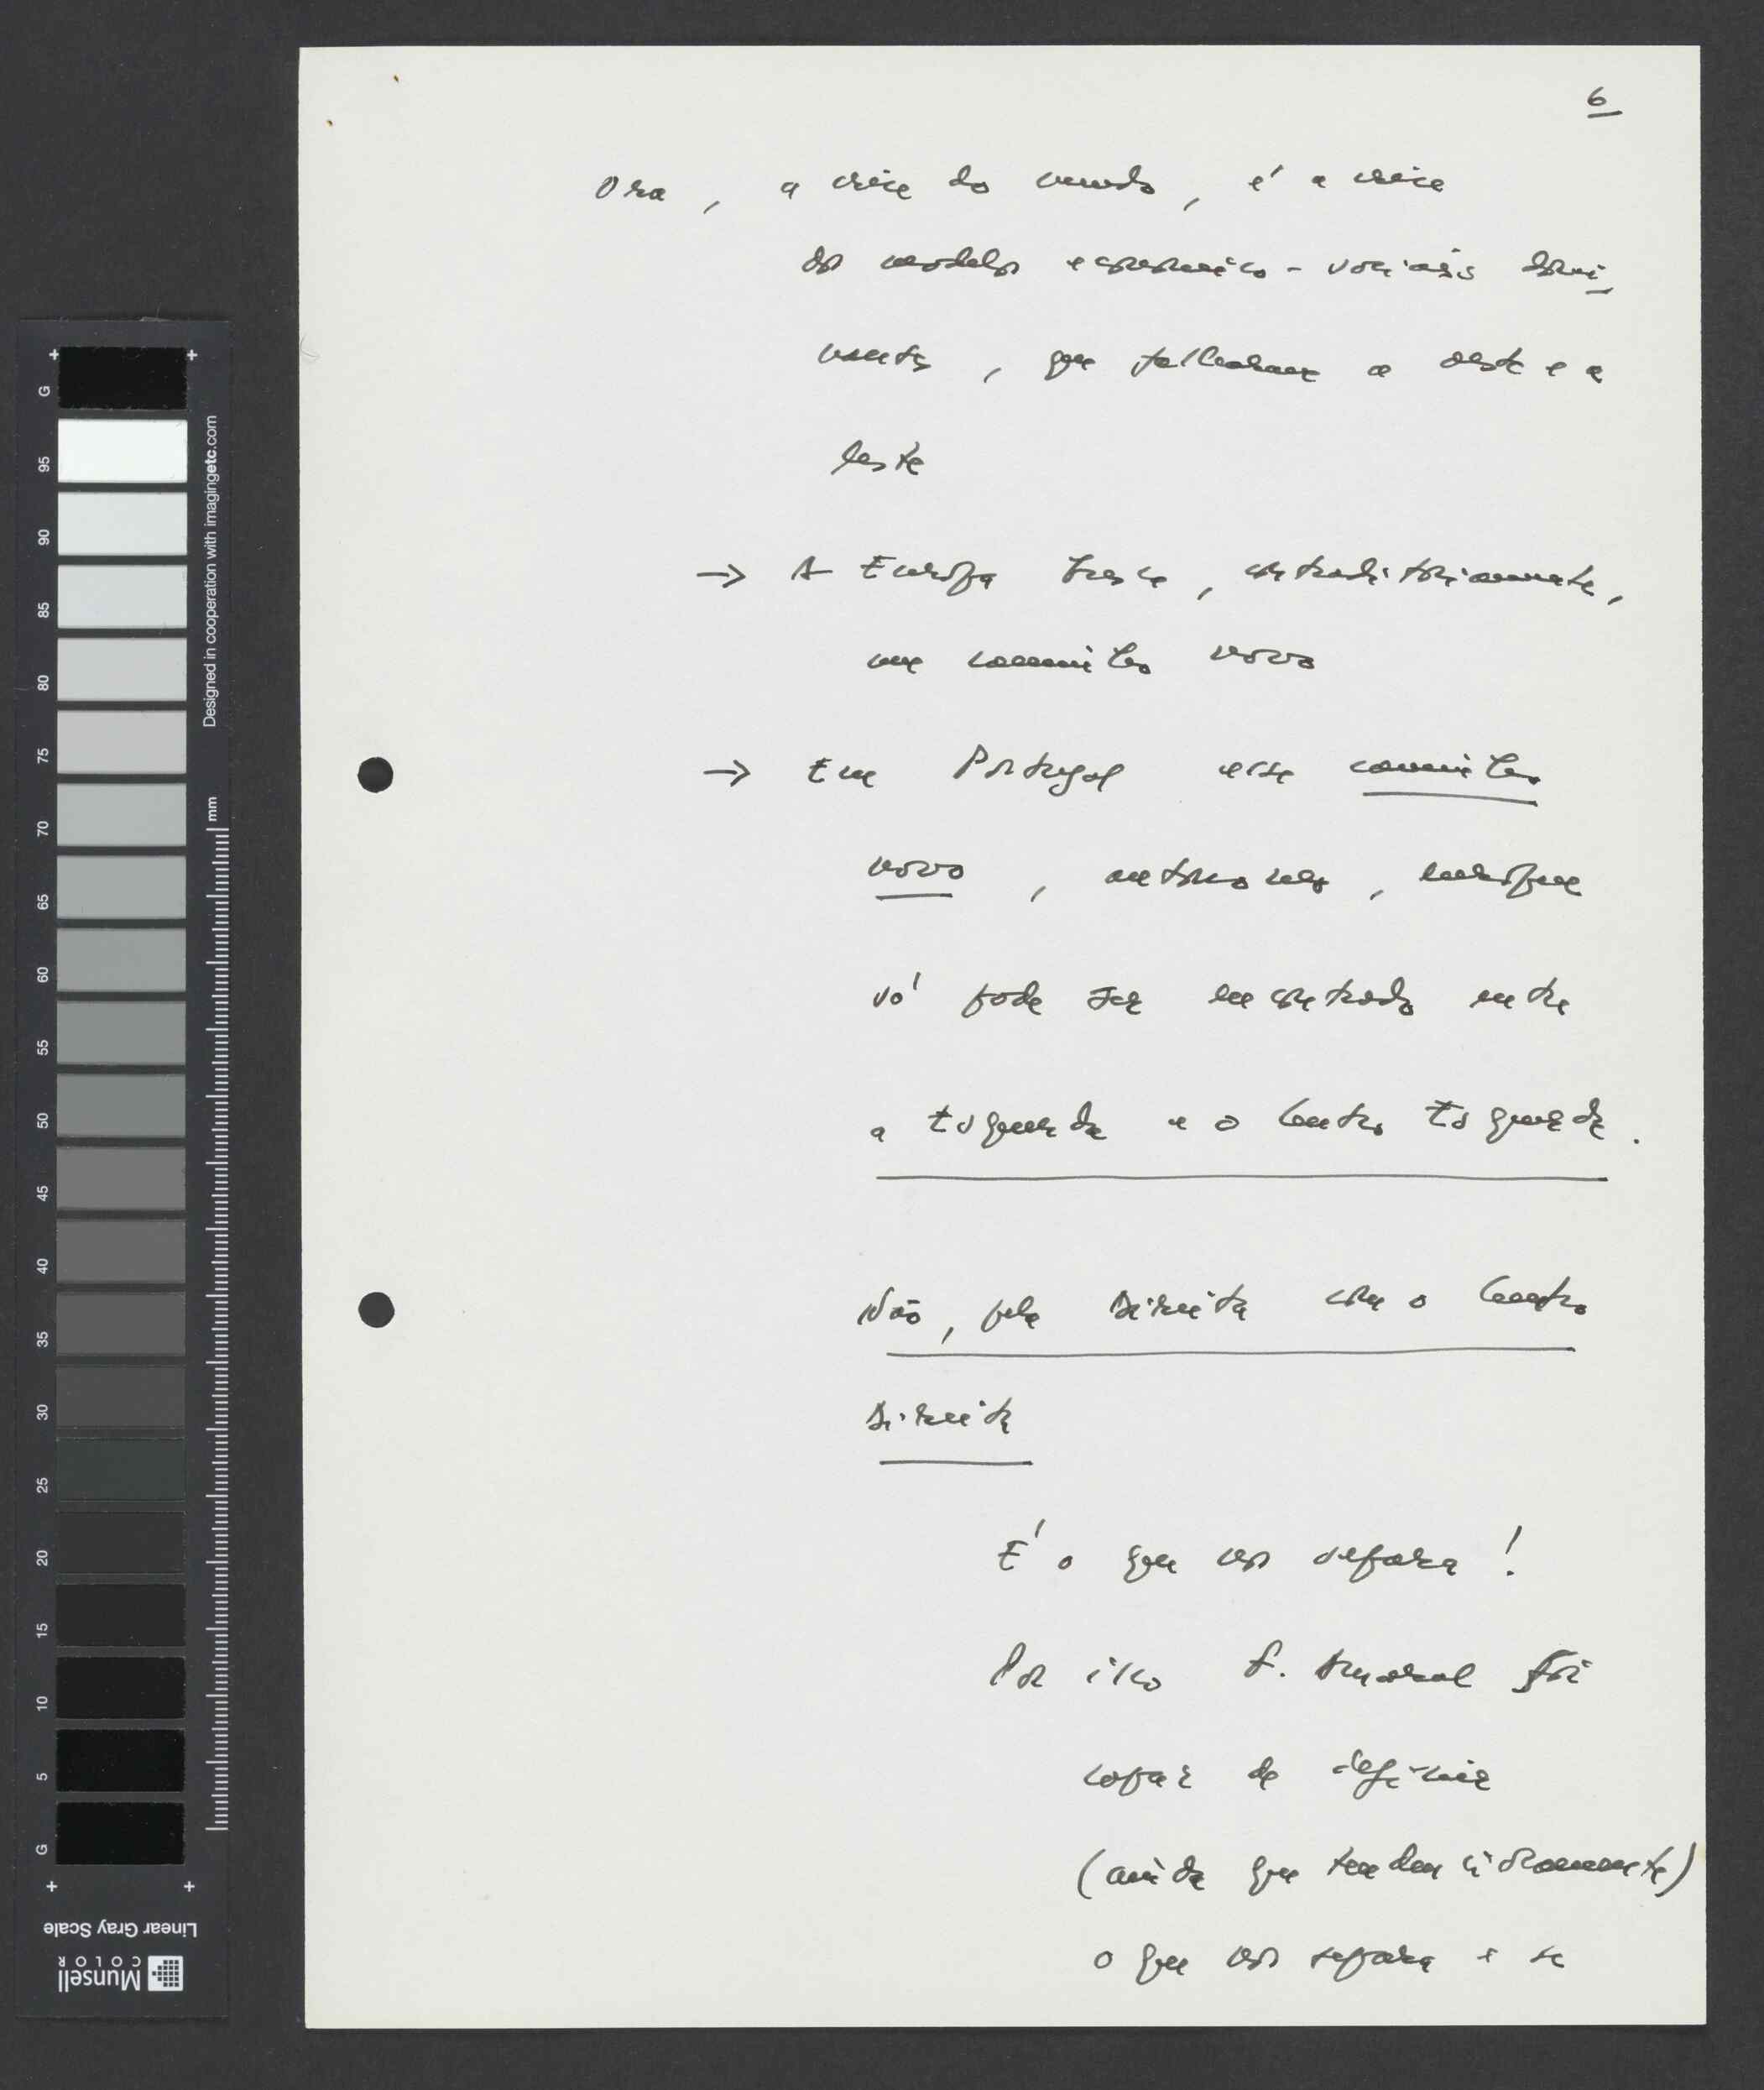 6
Ora, a crise do mundo, é a crise
dos modelos economico-sociais domi
nantes, que falharam a oeste e a
leste
→ A Europa busca, contraditoriamente,
um caminho novo
→ Em Portugal esse caminho
novo, autonomo, europeu
só pode ser encontrado entre
a Esquerda e o Centro Esquerda.
Não, pela Direita com o Centro
Direita
É o que nos separa!
Por isso F. Amaral foi
capaz de definir
(ainda que tendenciosamente)
o que nos separa e se
G 95 90 85 80 75 70 65 60 55 50 45 40 35 30 25 20 15 10 5 G
Designed in cooperation with imagingetc.com
mm
Linear Gray Scale
Munsell
COLOR